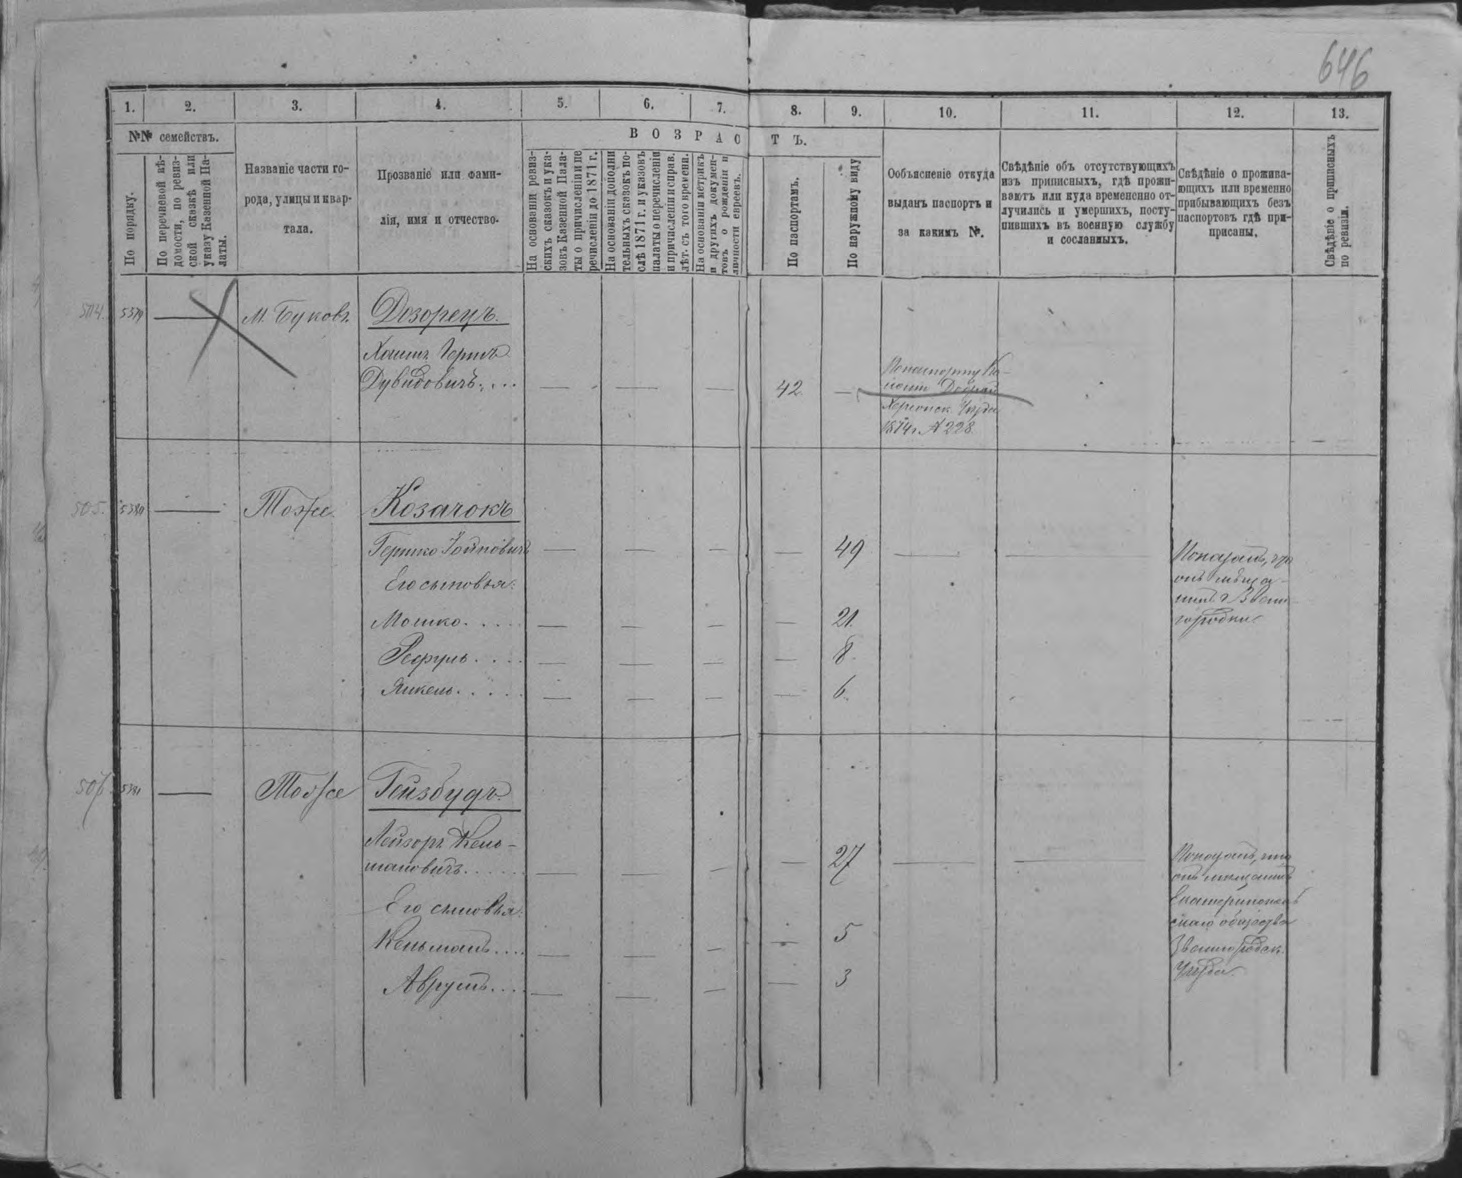 646
1. 2. 3. 4. 5. 6. 7. 8. 9. 10. 11. 12. 13.
№№ семействъ.
По порядку.
По перечневой вѣ-
домости, по ревиз-
ской сказкѣ или
указу Казенной Па-
латы.
Названіе части го-
рода, улицы и квар-
тала.
Прозваніе или фами-
лія, имя и отчество.
ВОЗРАСТЪ.
На основаніи ревиз-
скихъ сказокъ и ука-
зовъ Казенной Пала-
ты о причисленіи и пе
речисленіи до 1871 г.
На основаніи дополни
тельныхъ сказокъ по-
слѣ 1871 г. и указовъ
палаты о перечисленіи
и причисленіи и справ.
лѣт. съ того времени.
На основаніи метрикъ
и другихъ докумен-
товъ о рожденіи и
личности евреевъ.
По паспортамъ.
По наружному виду
Ообъясненіе откуда
выданъ паспортъ и
за какимъ №.
Свѣдѣніе объ отсутствующихъ
изъ приписныхъ, гдѣ прожи-
ваютъ или куда времененно от-
лучились и умершихъ, посту-
пившихъ въ военную службу
и сосланныхъ.
Свѣдѣніе о прожива-
ющихъ или временно
прибывающихъ безъ
паспортовъ гдѣ при-
присаны.
Свѣдѣніе о приписныхъ
по ревизіи.
504. 5379 М. Буковъ. Дозорецъ.
Хаимъ Герш
Дувидовичъ. 42
1874 г. № 228
505. 5380 Тоже. Козачокъ
Гершко 49
Его сыновья:
Мошко 21.
Рефуль 8.
Янкель 6.
Показалъ, что
онъ мѣща-
нинъ г. Звени-
городки
506 5381 Тоже Гейзбудъ.
Лейзоръ Кель-
мановичъ 27
Его сыновья:
Кельманъ 5
Аврумъ 3
Показалъ, что
онъ мѣщанинъ
Екатеринополь
скаго общества
Звенигородск.
Уѣзда